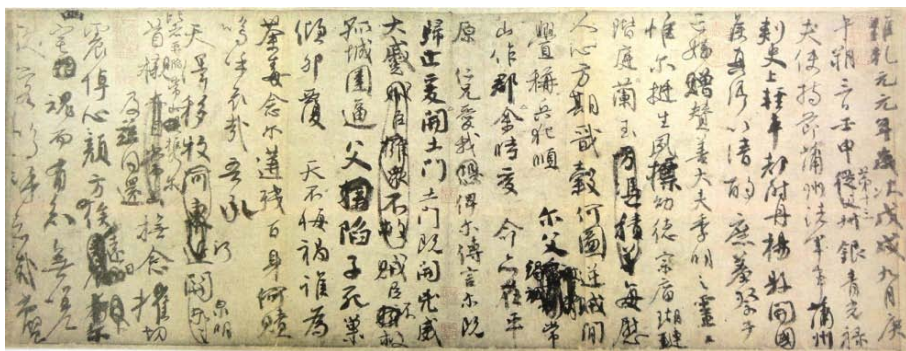 維乾元元年歲次戊戌九月庚
午朔三日壬申第十三從父銀青光祿
夫使持節蒲州諸軍事蒲州
刺史上輕車都尉丹楊縣開國
侯真卿以清酌庶羞祭于
亡姪贈贊善大夫季明之靈曰
惟爾挺生夙標幼德宗廟瑚璉
階庭蘭玉方憑積善每慰
人心方期戩穀何圖逆賊閒
釁稱兵犯順爾父竭誠常
山作郡余時受命亦在平
原仁兄愛我俾爾傳言爾既
歸止爰開土門土門既開凶威
大蹙賊臣擁眾不救賊臣不救
孤城圍逼父陷子死巢
傾卵覆天不悔禍誰為
荼毒念爾遘殘百身何贖
嗚乎哀哉吾承
天澤移牧河東近河關泉明
比者再陷常山攜爾
首櫬亦自常山及茲同還撫念摧切
震悼心顏方俟遠日卜爾
幽宅魂而有知無嗟
久客嗚呼哀哉尚饗